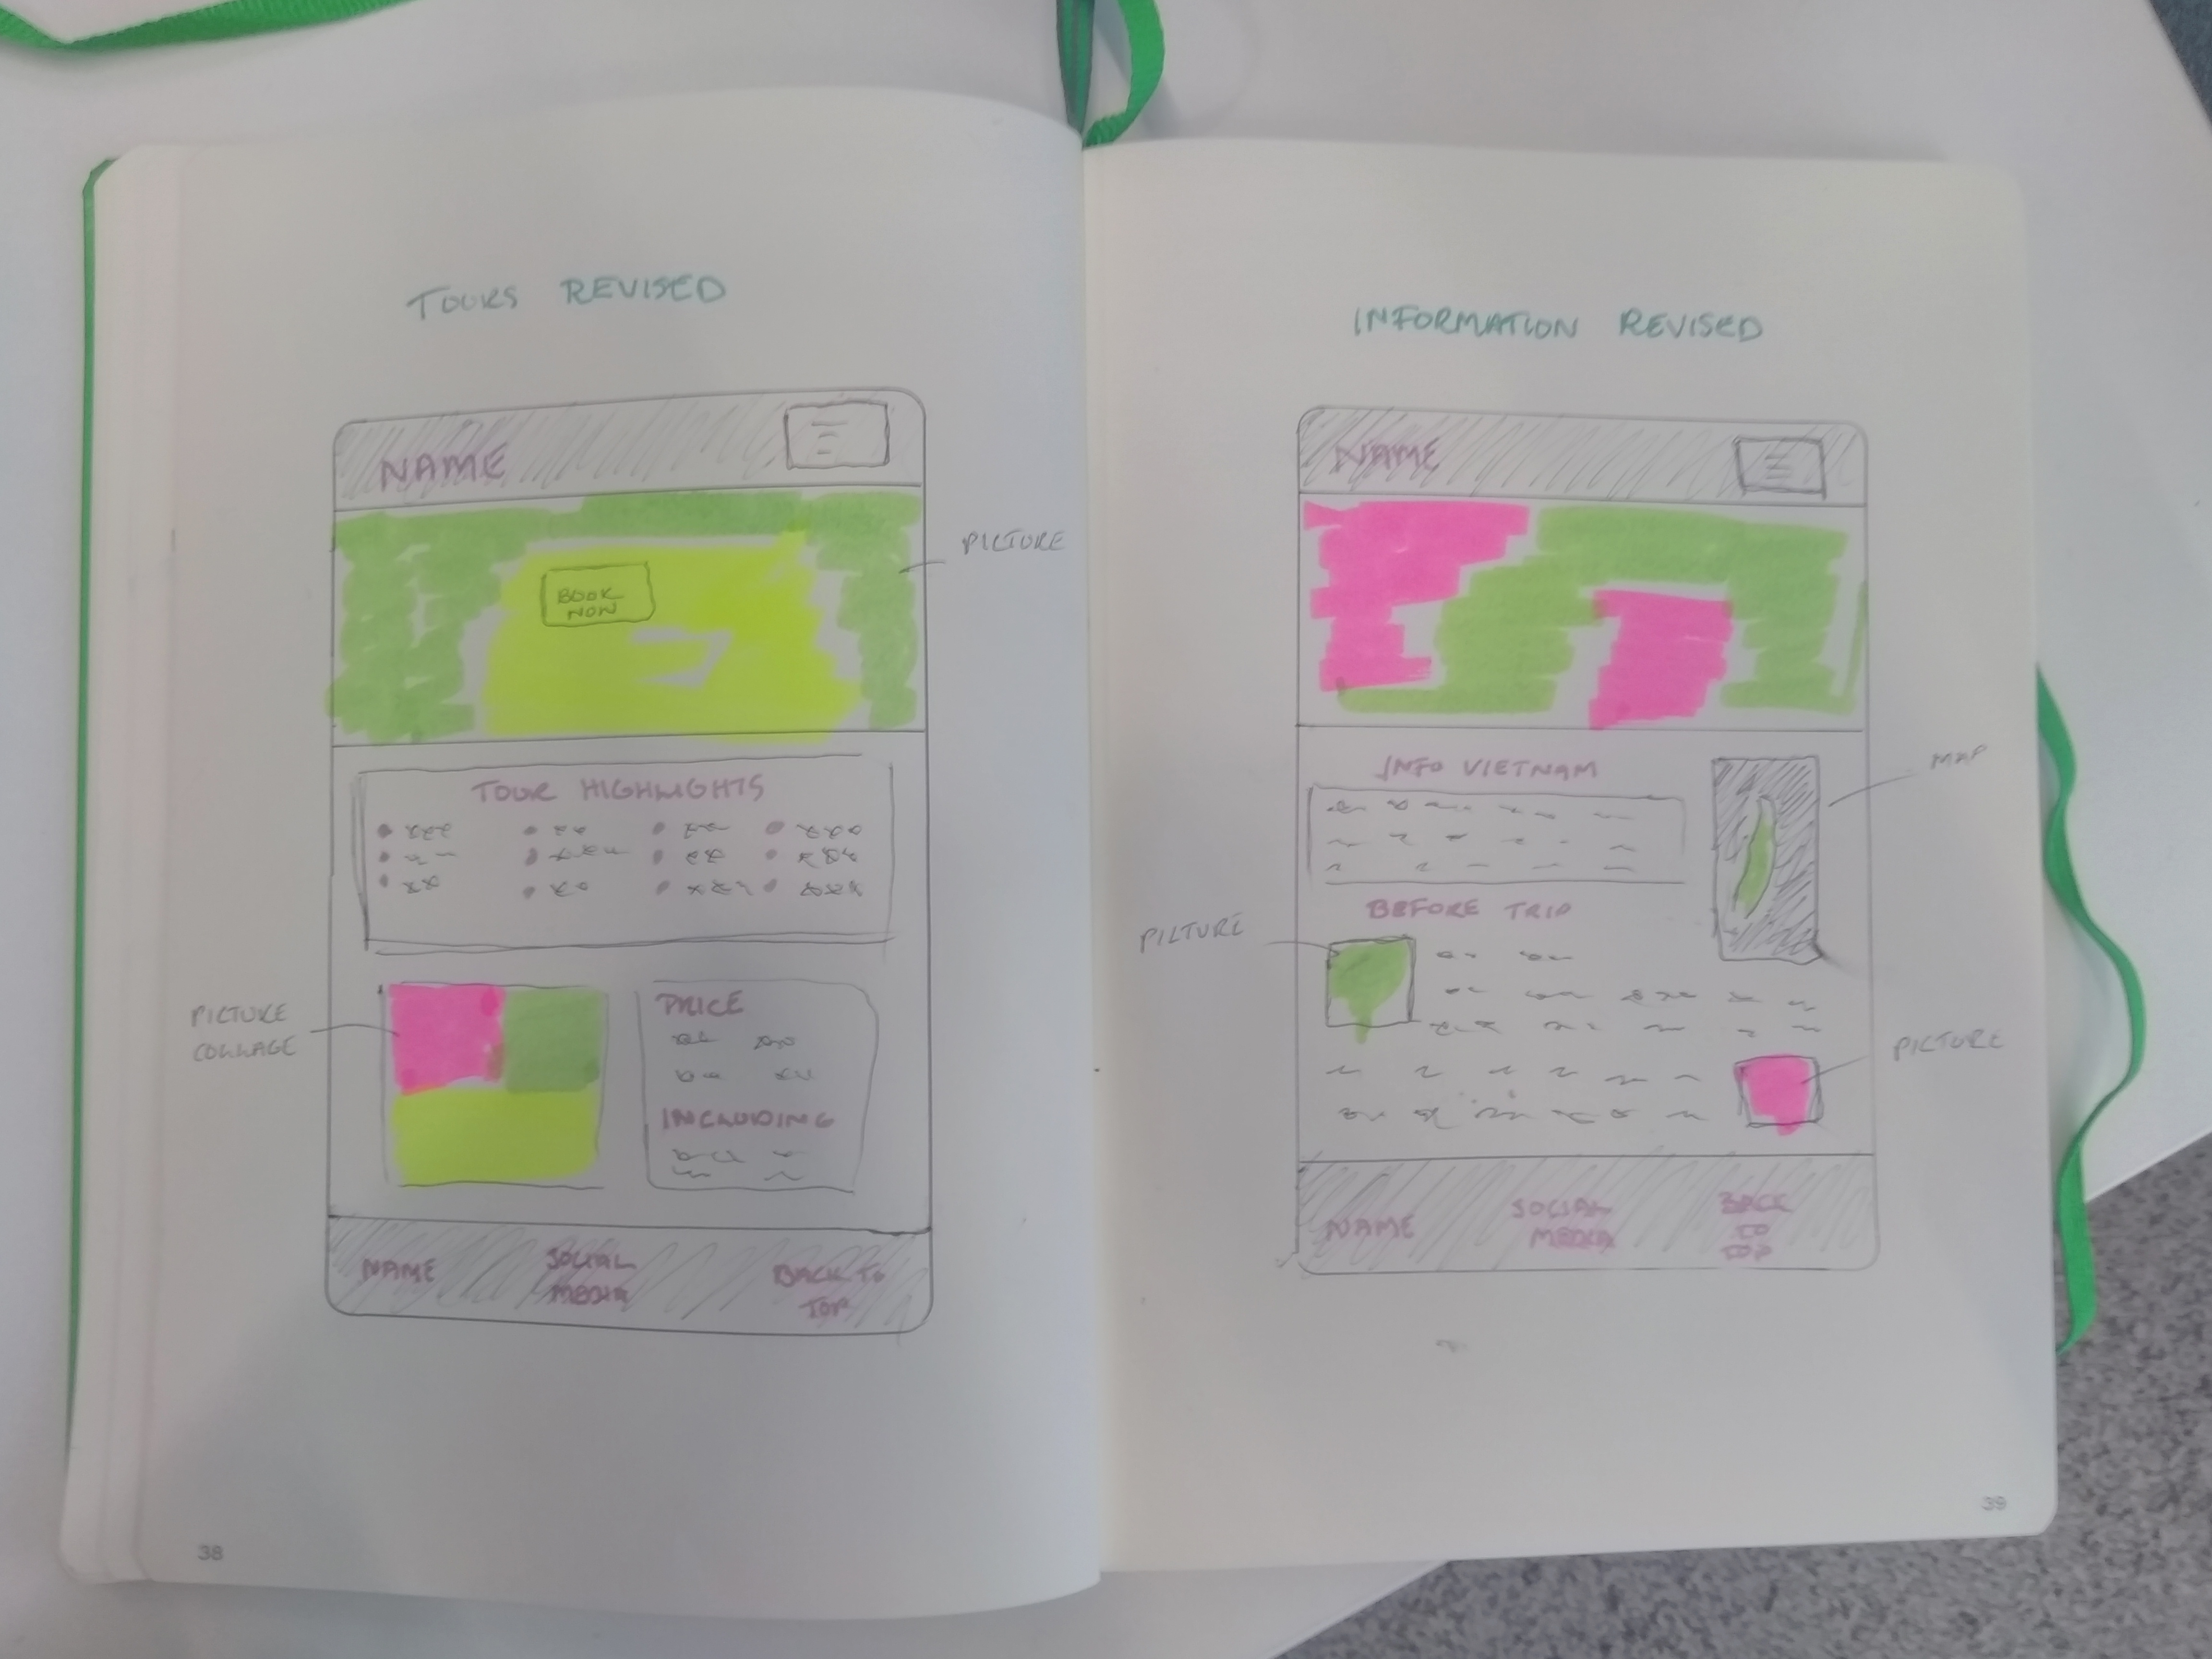 TOURS REVISED
NAME
BOOK
NOW
PICTURE
TOUR HIGHLIGHTS
PICTURE
COLLAGE
PRICE
INCLUDING
NAME
SOCIAL
MEDIA
BACK TO
TOP
38
INFORMATION REVISED
NAME
INFO VIETNAM
MAP
BEFORE TRIP
PICTURE
PICTURE
NAME
SOCIAL
MEDIA
BACK
TO
TOP
39